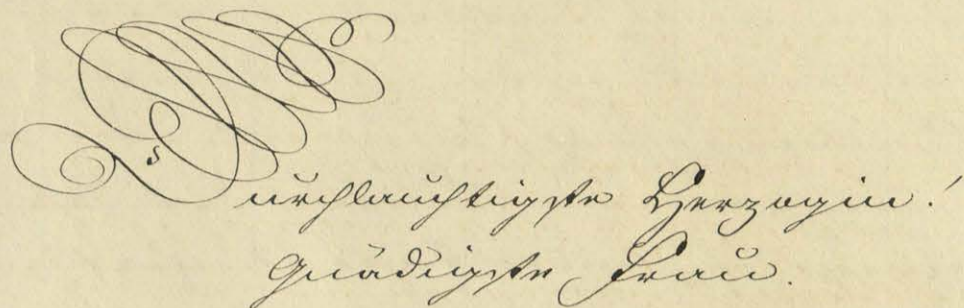 Durchlauchtigste Herzogin!
Gnädigste Frau.